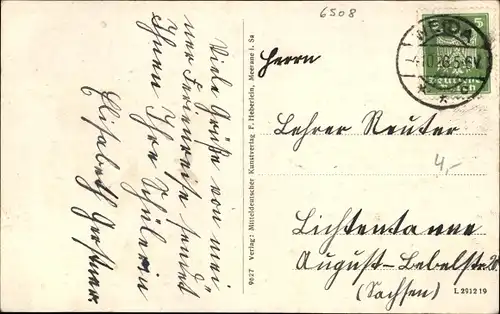 6508
Viele Grüße von mei-
ner Ferienreise sendet
Ihnen Ihre Schülerin
Elisabeth
9627 Verlag: Mitteldeutscher Kunstverlag F. Heberlein, Meerane i. Sa
WEIDA
5
Herrn
Lehrer Reuter
4,-
Lichtentanne
August-Bebelstr.
(Sachsen)
L 29 12 19